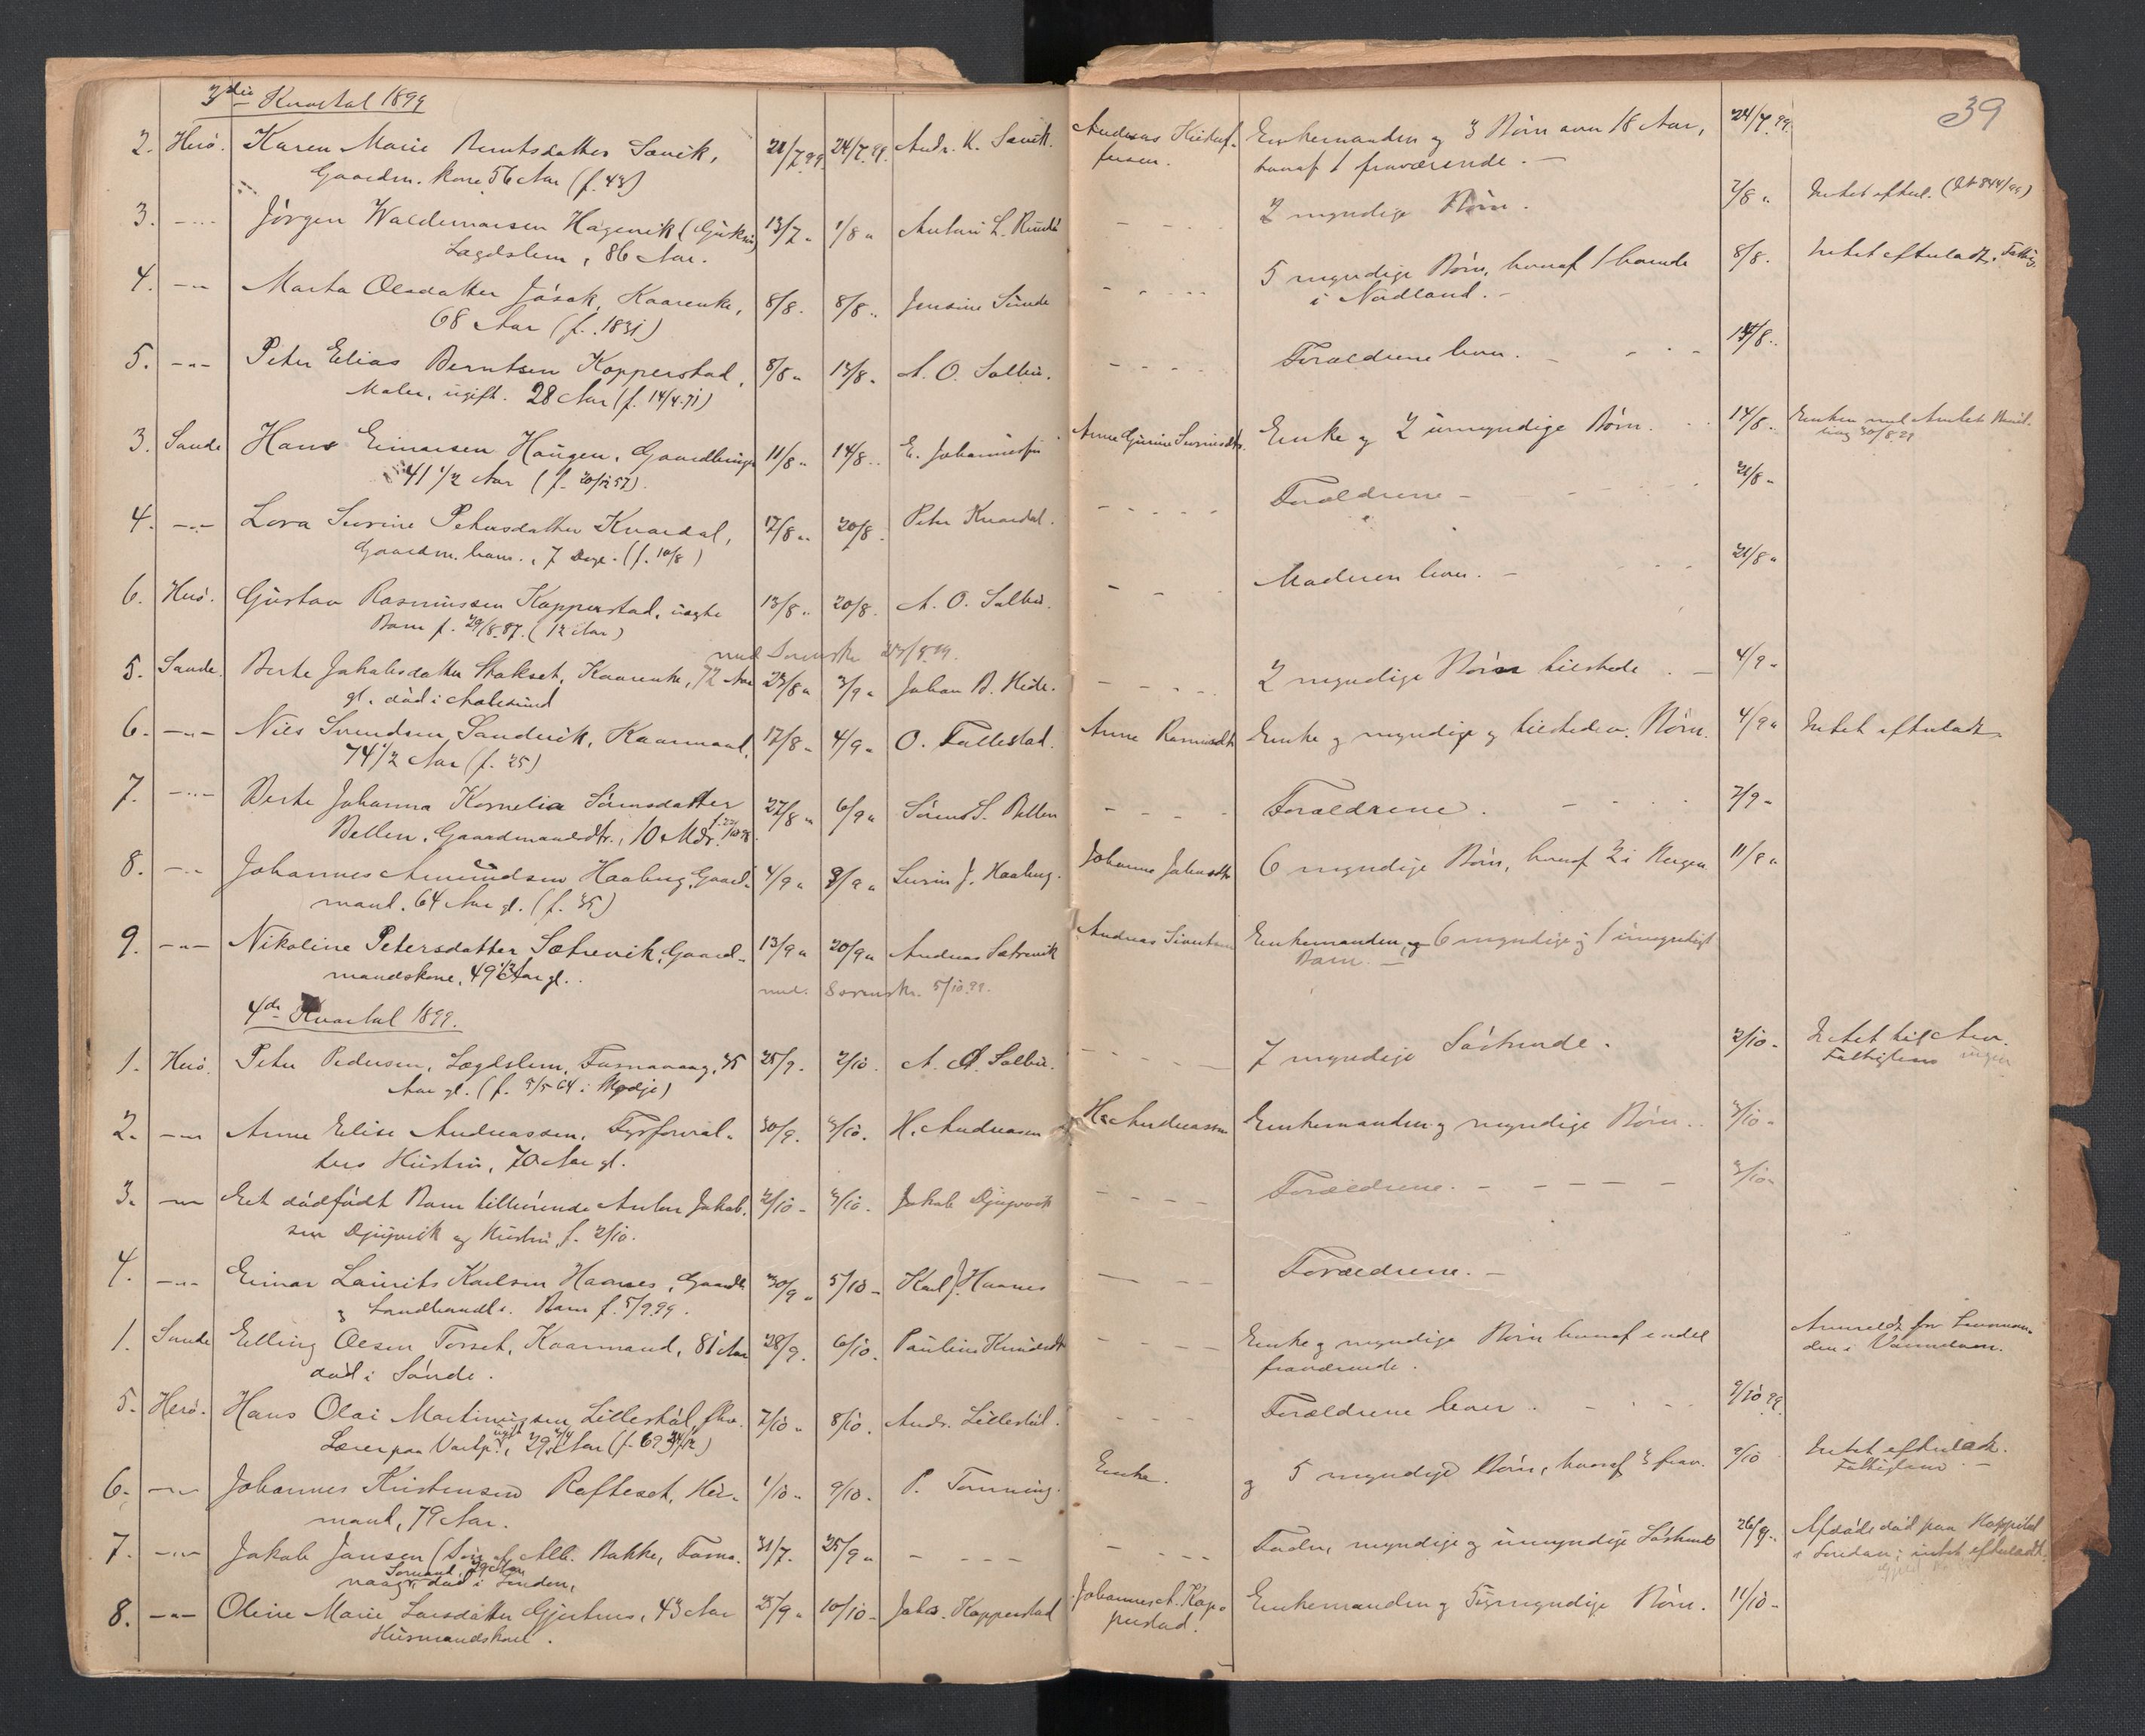 39
3die Kvartal 1899
2. Herö. Karen Marie Berntsdatter Sævik, 21/7 99 24/7 99. Andr. K. Sævik. Andreas Kristof- Enkemanden og 3 Börn over 18 Aar, 24/7 99.
Gaardm. kone 56 Aar (f. 43) fersen. hvoraf 1 fraværende. —
3. -„- Jörgen Waldemarsen Hagevik 13/7 „ 1/8 „ Antoni L. - - - - 2 myndige Börn. 2/8 „ Intet efterl. (844/99)
Lægdslem, 86 Aar.
4. -„- Marta Olsdatter Jösok, Kaarenke, 8/8. 8/8 „ Jensine Sunde - - - - 5 myndige Börn, hvoraf 1 boende 8/8. Intet efterladt. Fattig
68 Aar (f. 1831) i Nordland. —
5. -„- Peter Elias Berntsen Kopperstad, 8/8 „ 14/8 „ A. O. Solbu. - - - - Forældrene lever. - - - 14/8 „
Maler, ugift. 28 Aar (f. 14/4.71)
3. Sande Hans Einarsen Haugen, Gaardbruger 11/8 „ 14/8 „ E. Johannesen Anne Gurine Enke og 2 umyndige Börn. 14/8 „ Enken med Amtets Bevil-
41 1/2 Aar (f. 20/12 57). ling 30/8 99
4. -„- Lova Severine Petersdatter Kvardal, 17/8 „ 20/8. Peter Kvardal. - - - - Forældrene - - - - 21/8 „
Gaardm. barn., 7 Dage. (f. 10/8)
6. Herö. Gustav Rasmussen Kopperstad, uægte 13/8 „ 20/8. A. O. Solbu. - - - Moderen lever. - - - - 21/8 „
Barn f. 29/8.87. (12 Aar)
med Sorenskr.
5. Sande. Berte Jakobsdatter Kaarenke, 72 Aar 23/8 „ 3/9 „ Johan B. Hide. - - - - 2 myndige Börn tilstede. — 4/9 „
gl. död i Aalesund
6. -„- Nils Svendsen Sandvik, Kaarmand, 17/8 „ 4/9 „ O. Fallestad. Anne Enke og myndige og tilstedev. Börn. 4/9 „ Intet efterladt.
74 1/2 Aar (f. 25)
7. -„- Berte Johanna Kornelia Sörensdatter 27/8 „ 6/9 „ Sören S. Bellen - - - - Forældrene. - - - 7/9 „
Bellen, Gaardmandsdtr., 10 Mdr.
8. -„- Johannes Amundsen Haaberg, Gaard- 4/9 „ 9/9 „ Severin J. Haaberg. Johanne 6 myndige Börn, hvoraf 2 i Bergen 11/9 „
mand. 64 Aar gl. (f. 35)
9. -„- Nikoline Petersdatter Sætrevik, Gaard- 13/9 „ 20/9 „ Andreas Sætrevik Andreas Sivertsen Enkemanden, og 6 myndige og 1 umyndigt
mandskone, 49 1/2 Aar gl. Barn. —
med. Sorenskr. 5/10 99.
4de Kvartal 1899.
1. Herö. Peter Pedersen, Lægdslem, Fosnavaag, 35 25/9. 2/10. A. O. Solbu. - - - - 7 myndige Söskende. 2/10 „ Intet til Arv.
Aar gl. (f. 5/5 64 i Skodje) Fattiglem
2. -„- Anne Elise Andreassen, Fyrforval- 30/9. 3/10. H. Andreassen H. Andreassen Enkemanden og myndige Börn. 3/10 „
ters Hustru, 70 Aar gl.
3. -„- Eet dödfödt Barn tilhörende Anton Jakob- 2/10 „ 3/10. Jakob Djupvik - - - - Forældrene. - - - - - 3/10 „
sen Djupvik og Hustru, f. 2/10.
4. -„- Einar Laurits Karlsen Haanes, Gaardb. 30/9 „ 5/10 „ Karl J. Haanes - - - Forældrene. —
og Landhandl. Barn f. 5/9 99.
1. Sande Elling Olsen Torset, Kaarmand, 81 Aar 28/9. 6/10. Pauline - - - Enke og myndige Börn hvoraf endel Anmeldt for Lensman-
död i Sönde. fraværende. den i Vannelven.
5. Herö. Hans Olai Martinussen Lilleskál, fhv. 7/10 „ 8/10. Andr. Lilleskál. - - - Forældrene lever. - - - 9/10 99.
Lærer paa Vartp., ugift, 29 3/4 Aar (f. 69 24/12)
6. -„- Johannes Kristensen Rafteset, Hus- 1/10 „ 9/10 „ P. Tonning. Enke. og 5 myndige Börn, hvoraf 3 frav. 9/10 Intet efterladt.
mand, 79 Aar. Fattiglem —
7. -„- Jakob Jansen (Sön af Alb. Bakke, Fosna- 31/7. 25/9 „ - - - - - - - - Fader, myndige og umyndige Söskende 26/9 „ Afsöde död paa Hospital
vaag. död i London, Sömand, i London; intet efterladt.
8. -„- Oline Marie Larsdatter Gjertnes, 43 Aar 25/9 „ 10/10 „ Johs. Kopperstad Johannes A. Kop- Enkemanden og 5 umyndige Börn. 11/10 „
Husmandskone. perstad.